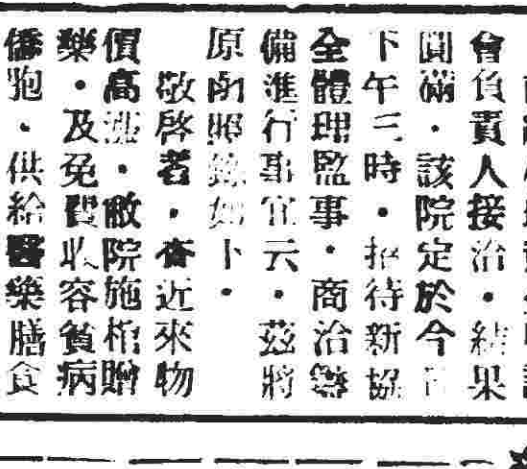 會負責人接洽・結果
圓滿・該院定於今日
下午三時・招待新協
全體理監事・商洽籌
備進行事宜云・茲將
原函照錄如下・
敬啓者・查近來物
價高漲・敝院施棺贈
藥・及免費收容貧病
僑胞・供給醫藥膳食